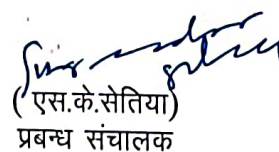 ( एस.के.सेतिया)
प्रबन्ध संचालक